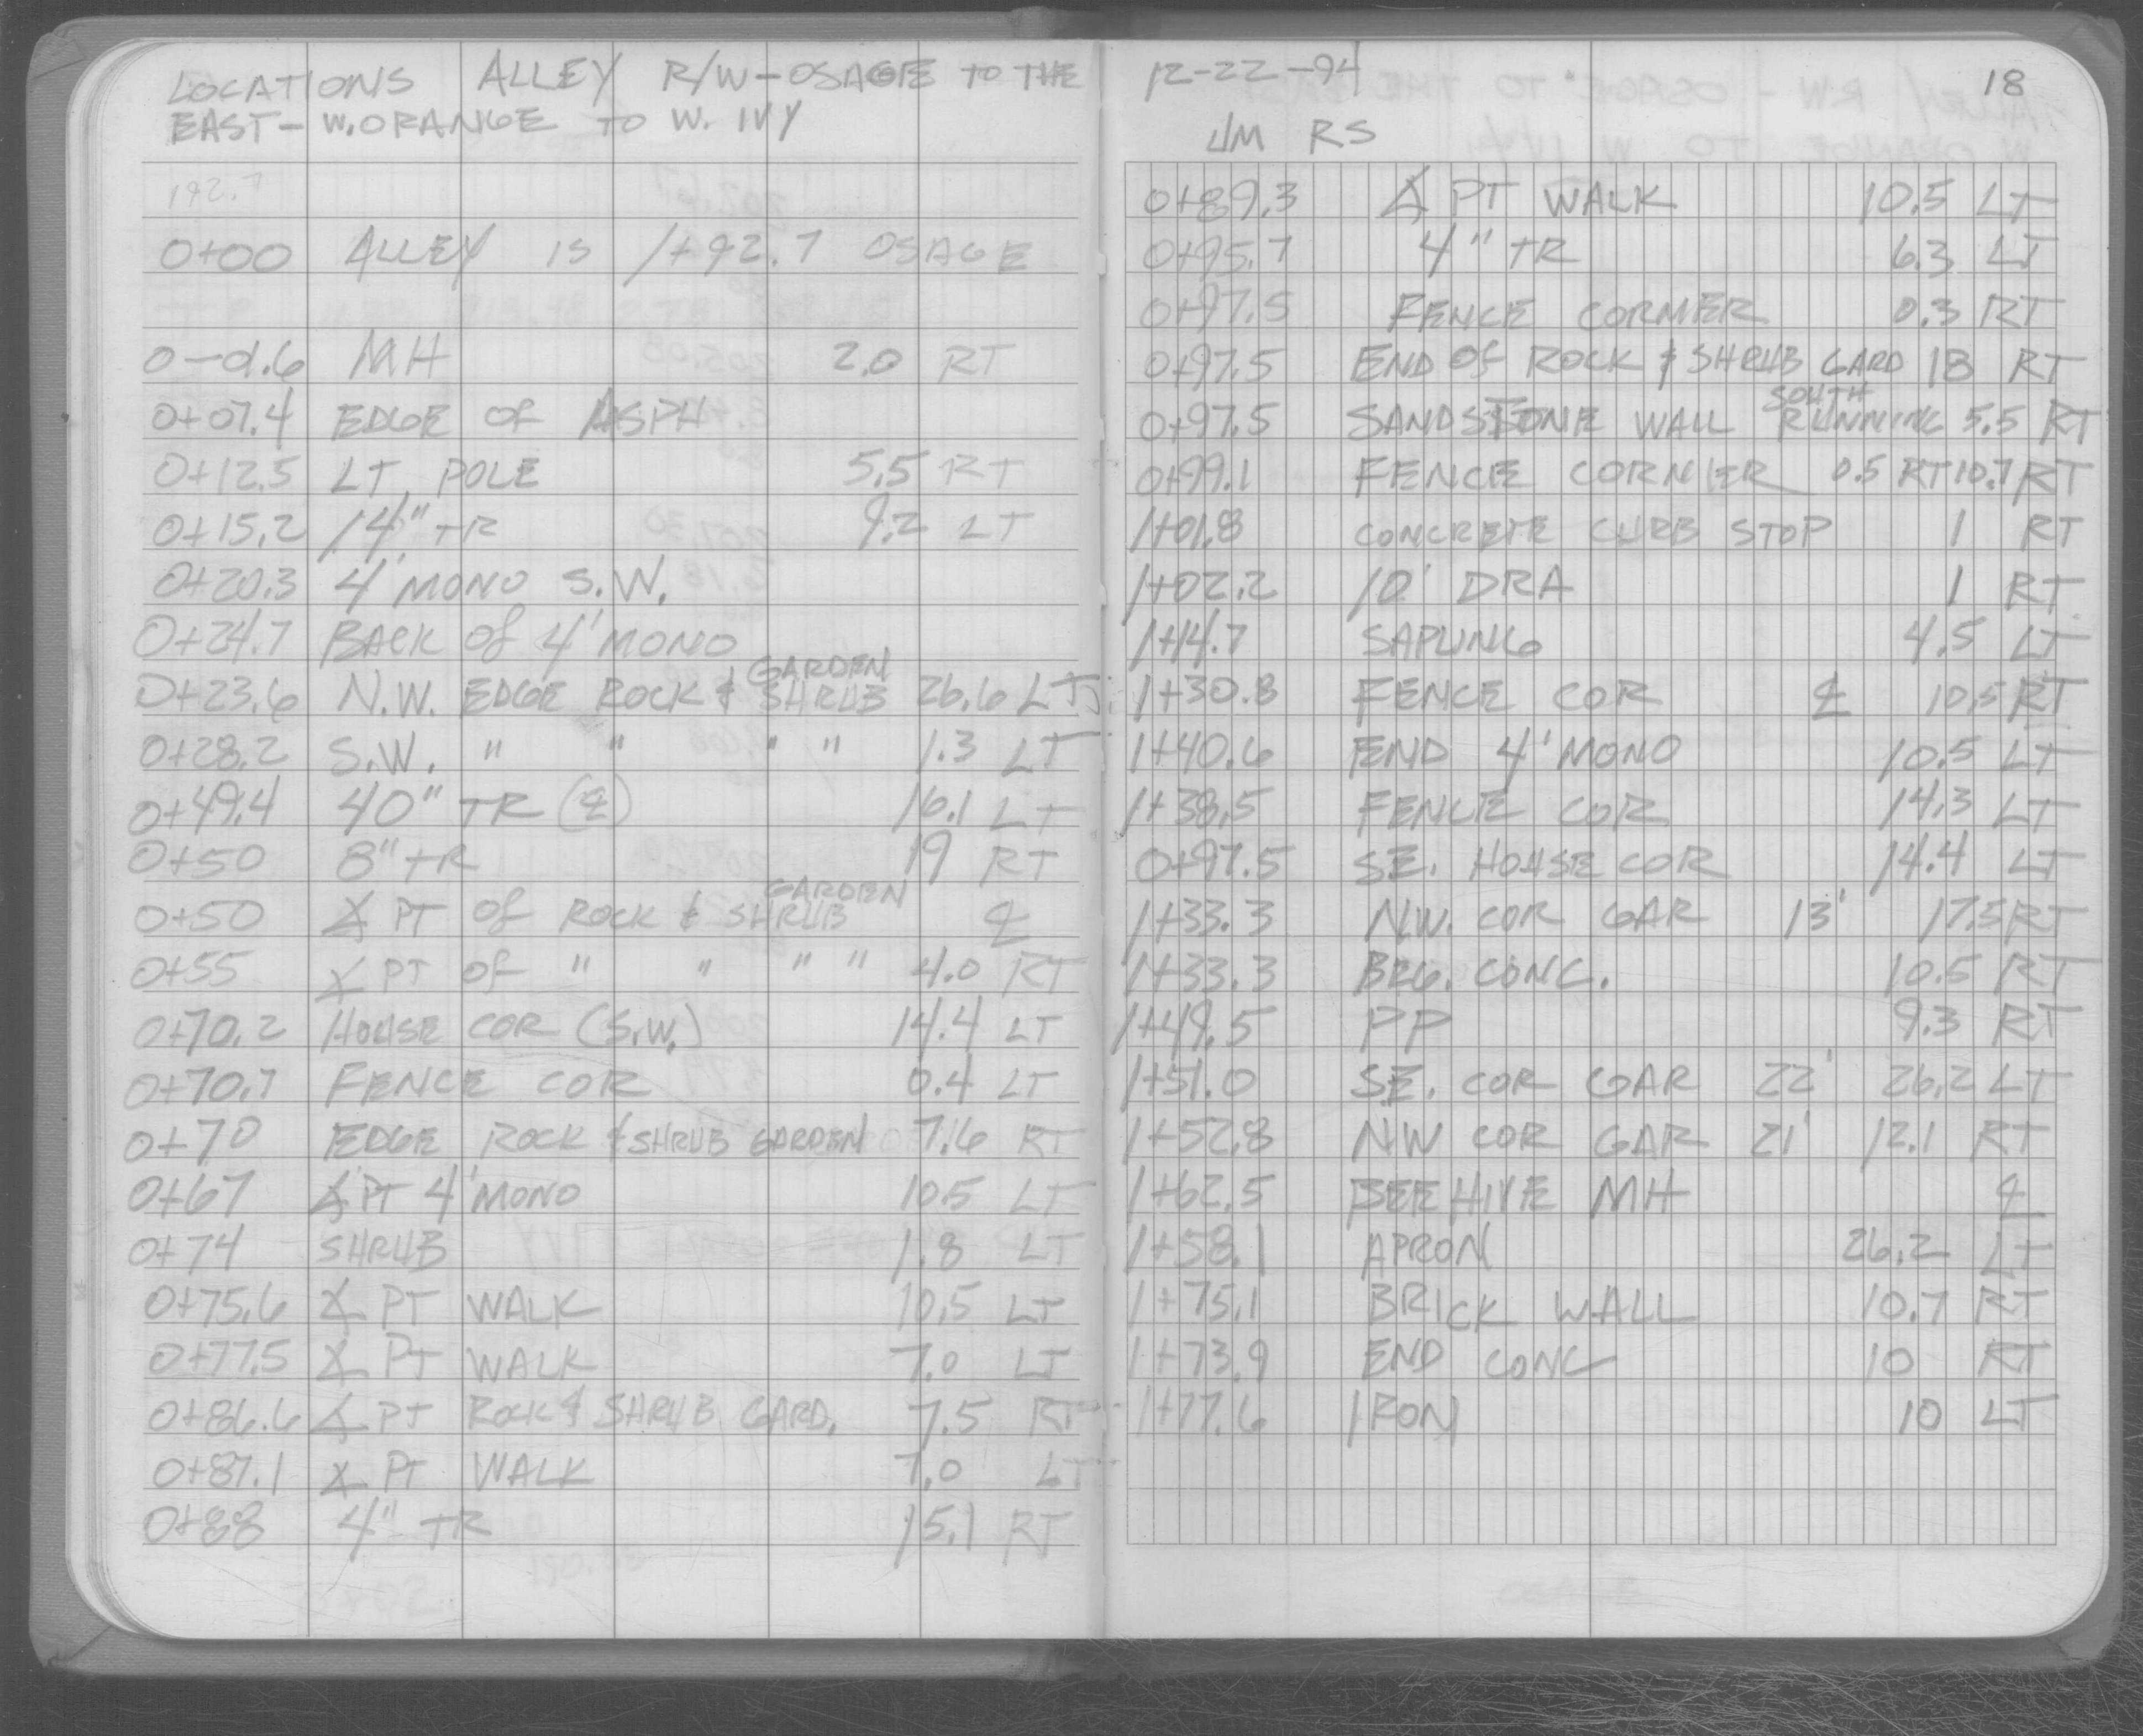 LOCATIONS ALLEY R/W - OSAGE TO THE
EAST - W. ORANGE TO W. IVY
192.7
0+00 ALLEY IS 1+92.7 OSAGE
0-0.6 MH 2.0 RT
0+07.4 EDGE OF ASPH
0+12.5 LT. POLE 5.5 RT
0+15.2 14" TR 9.2 LT
0+20.3 4' MONO S.W.
0+24.7 BACK OF 4' MONO
0+23.6 N.W. EDGE ROCK & SHRUB GARDEN 26.6 LT
0+28.2 S.W. " " " " 1.3 LT
0+49.4 40" TR (℄) 16.1 LT
0+50 8" TR 19 RT
0+50 ∡ PT OF ROCK & SHRUB GARDEN ℄
0+55 ∡ PT OF " " " " 4.0 RT
0+70.2 HOUSE COR (S.W.) 14.4 LT
0+70.7 FENCE COR 0.4 LT
0+70 EDGE ROCK & SHRUB GARDEN 7.6 RT
0+67 ∡ PT 4' MONO 10.5 LT
0+74 SHRUB 1.8 LT
0+75.6 ∡ PT WALK 10.5 LT
0+77.5 ∡ PT WALK 7.0 LT
0+86.6 ∡ PT ROCK & SHRUB GARD. 7.5 RT
0+87.1 ∡ PT WALK 7.0 LT
0+88 4" TR 15.1 RT
12-22-94 18
JM RS
0+89.3 ∡ PT WALK 10.5 LT
0+95.7 4" TR 6.3 LT
0+97.5 FENCE CORNER 0.3 RT
0+97.5 END OF ROCK & SHRUB GARD 18 RT
0+97.5 SANDSTONE WALL SOUTH RUNNING 5.5 RT
0+99.1 FENCE CORNER 0.5 RT 10.7 RT
1+01.8 CONCRETE CURB STOP 1 RT
1+02.2 10' DRA 1 RT
1+14.7 SAPLING 4.5 LT
1+30.8 FENCE COR ℄ 10.5 RT
1+40.6 END 4' MONO 10.5 LT
1+38.5 FENCE COR 14.3 LT
0+97.5 SE. HOUSE COR 14.4 LT
1+33.3 N.W. COR GAR 13' 17.5 RT
1+33.3 BEG. CONC. 10.5 RT
1+49.5 PP 9.3 RT
1+51.0 SE. COR GAR 22' 26.2 LT
1+52.8 NW COR GAR 21' 12.1 RT
1+62.5 BEEHIVE MH ℄
1+58.1 APRON 26.2 LT
1+75.1 BRICK WALL 10.7 RT
1+73.9 END CONC 10 RT
1+77.6 IRON 10 LT